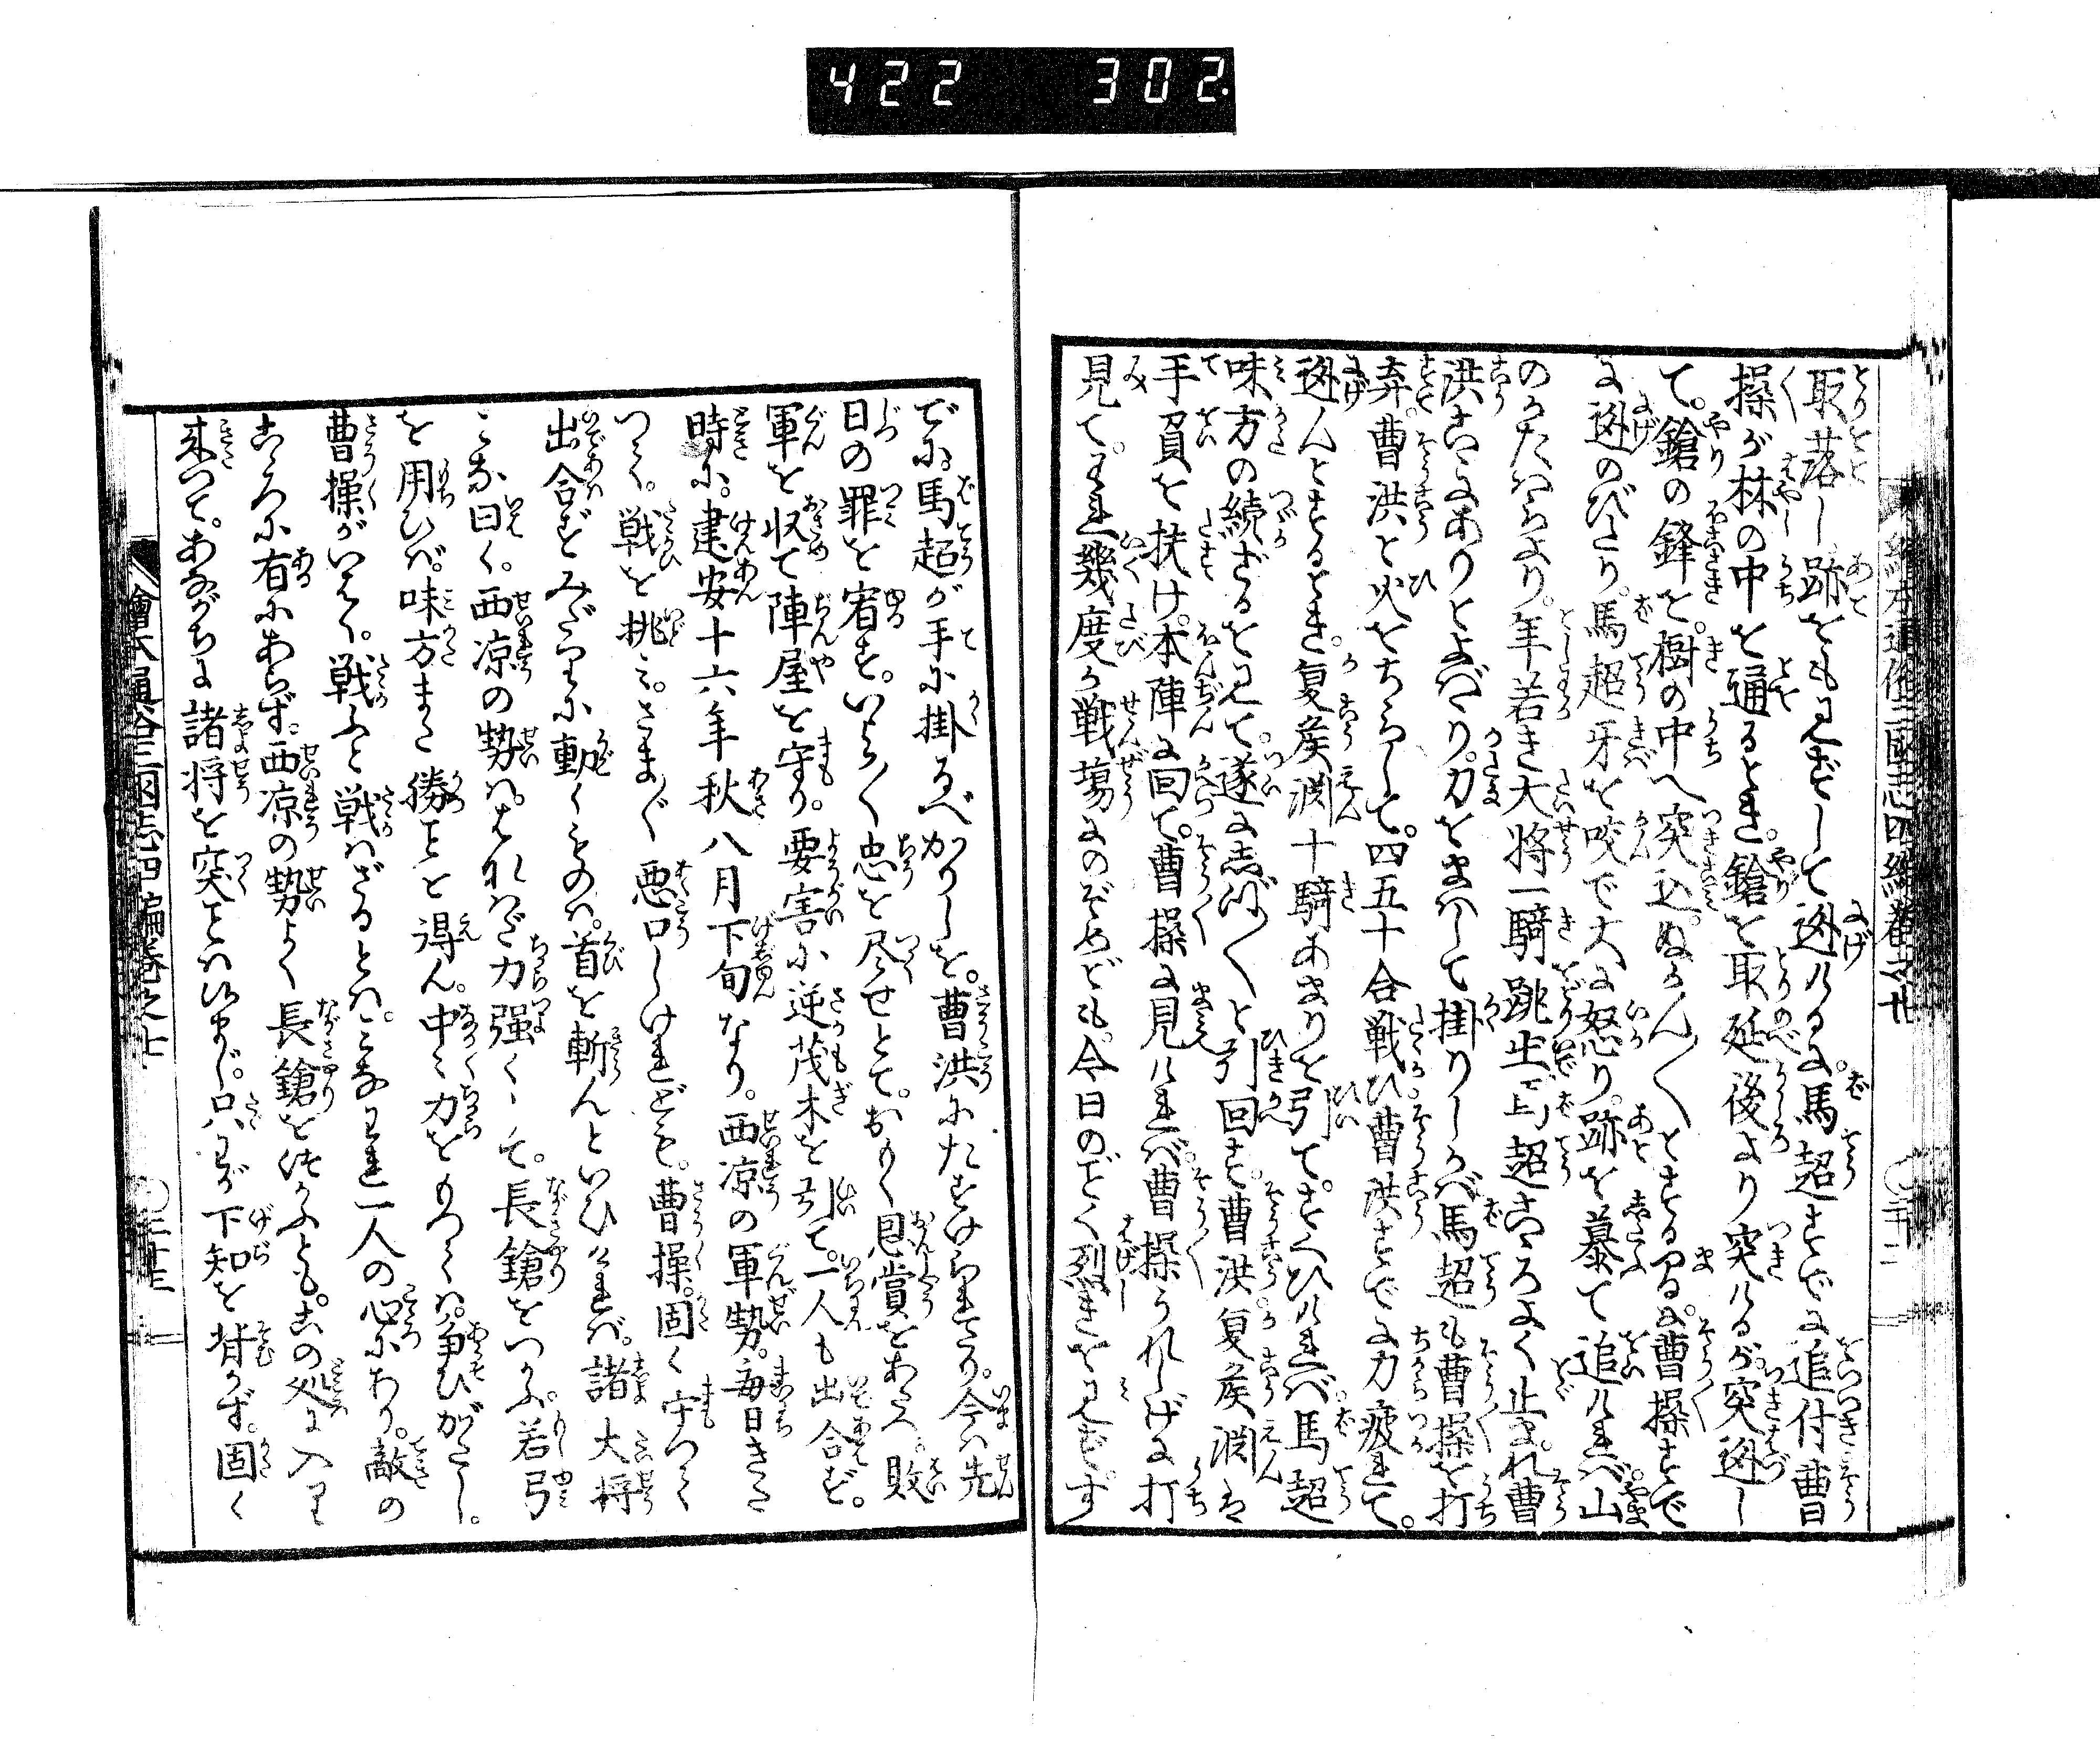 422 302.
取落し跡をも見ずして迯けるに。馬超すでに追付曹
操が林の中を通るとき。鎗を取延後より突けるが。突迯し
て。鎗の鋒を。樹の中へ突込。ぬかん〳〵とする間に。曹操すで
に迯のびたり。馬超牙を咬で大に怒り。跡を慕て追ければ。山
のかたはらより。年若き大将一騎跳出馬超こゝろよく止まれ曹
洪こゝにありとよばゝり。刀をまはして掛りしかば馬超も曹操を打
弃。曹洪と火をちらして。四五十合戦ひ曹洪すでに力疲れて。
迯んとするとき。夏侯淵十騎あまりを引て。すくひければ。馬超
味方の続ざるを見て。遂にしづ〳〵と引回す。曹洪。夏侯淵は
手負を扶け。本陣に回て。曹操に見ければ。曹操うれしげに打
見て。われ幾度か戦場にのぞめども。今日のごとく烈きを見ず。す
でに。馬超が手に掛るべかりしを。曹洪にたすけられたり。今は先
日の罪を宥す。いよ〳〵忠を尽せとて。おもく恩賞をあたへ。敗
軍を収て陣屋を守り。要害に逆茂木を引て。一人も出合ず。
時に。建安十六年秋八月下旬なり。西凉の軍勢。毎日きた
つて。戦を挑み。さま〴〵悪口しけれども。曹操。固く守つて
出合ずみだりに動くものは。首を斬んといひければ。諸大将
みな曰く。西凉の勢は。きはめて力強くして。長鎗をつかふ若弓
を用ひば。味方また勝ことを得ん。中々力をもつては。争ひがたし。
曹操がいはく。戦ふと戦はざるとは。みなわれ一人の心にあり。敵の
こゝろに有にあらず。西凉の勢よく長鎗を使ふとも。この処に入り
来つて。あながちに諸将を突ことはけまじ。只わが下知を背かず。固く
繪本通俗三國志四編巻之七
三十三